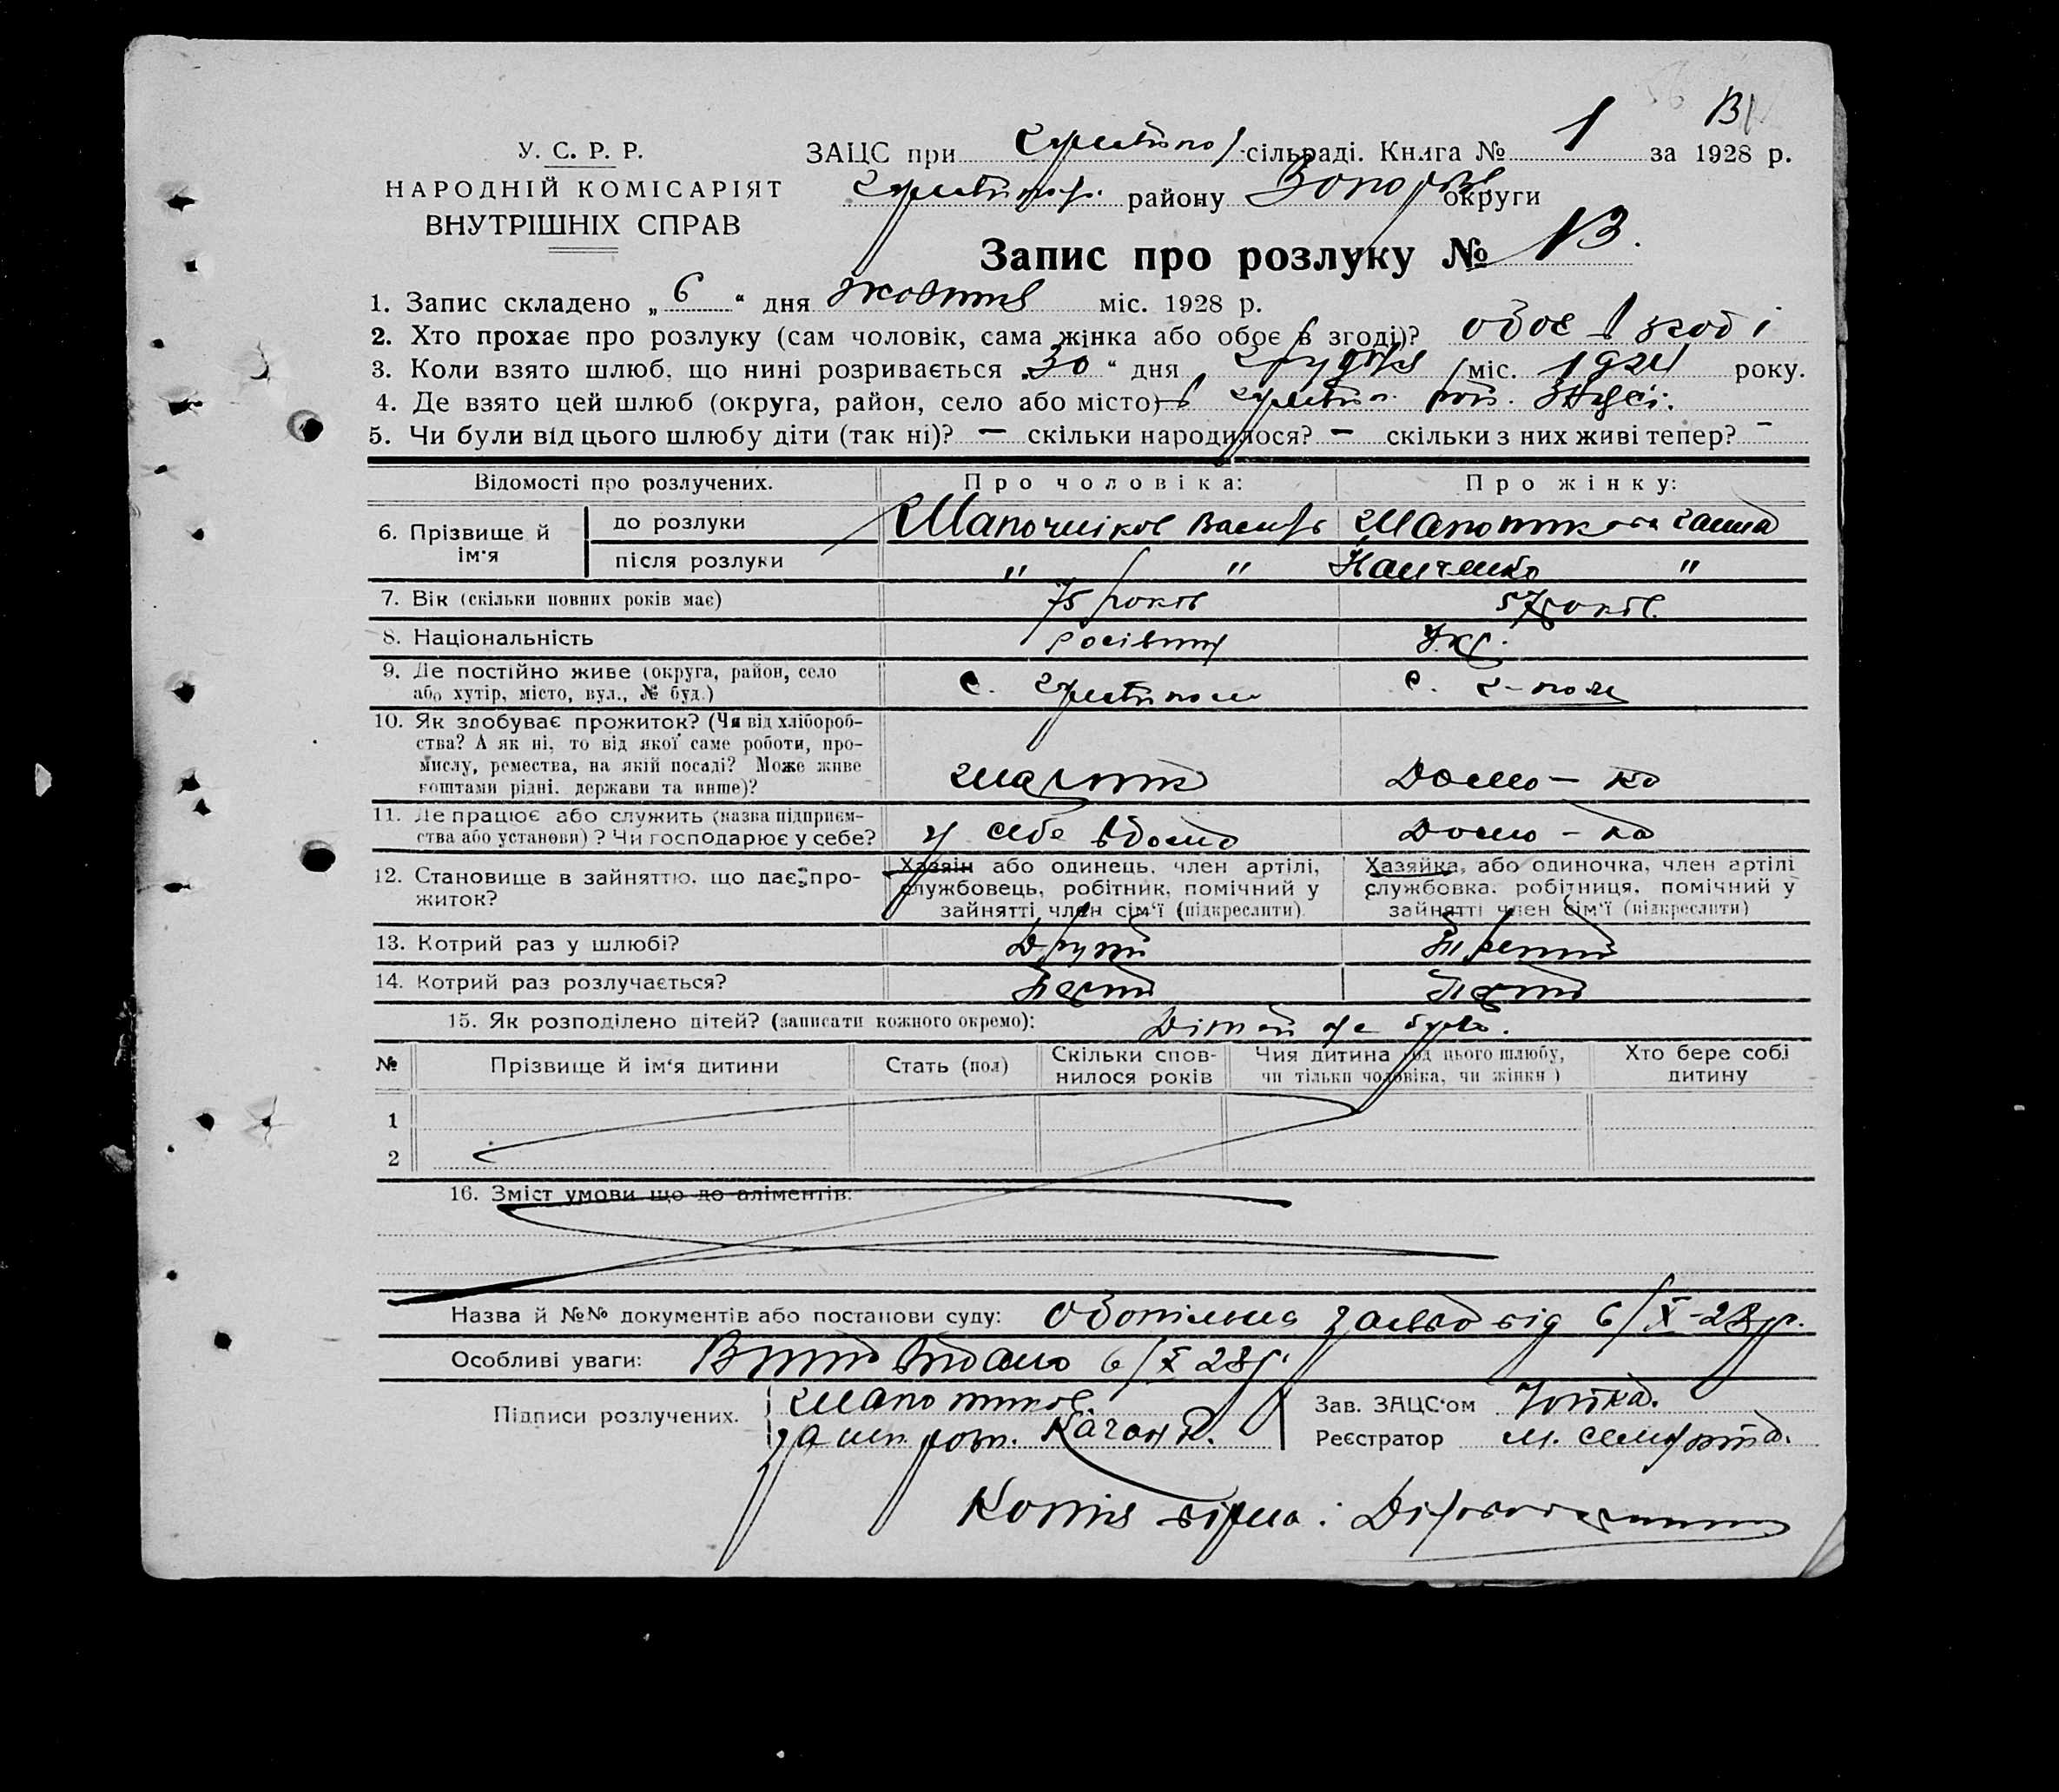 У. С. Р. Р.
НАРОДНІЙ КОМІСАРІЯТ
ВНУТРІШНІХ СПРАВ
ЗАЦС при сільраді. Книга № 1 за 1928 р.
району округи
Запис про розлуку № 13.
1. Запис складено „6“ дня жовтня міс. 1928 р.
2. Хто прохає про розлуку (сам чоловік, сама жінка або обоє в згоді)? обоє в згоді
3. Коли взято шлюб, що нині розривається „30“ дня грудня міс. року.
4. Де взято цей шлюб (округа, район, село або місто)
5. Чи були від цього шлюбу діти (так ні)? — скільки народилося? — скільки з них живі тепер? —
Відомості про розлучених. Про чоловіка: Про жінку:
6. Прізвище й ім'я
до розлуки Шапочніков Василь
після розлуки " " "
7. Вік (скільки повних років має) 75 років 57 років.
8. Національність росіянин Укр.
9. Де постійно живе (округа, район, село
або хутір, місто, вул., № буд.) с. с.
10. Як здобуває прожиток? (Чи від хлібороб-
ства? А як ні, то від якої саме роботи, про-
мислу, ремества, на якій посаді? Може живе
коштами рідні, держави та инше)? Домо-ка
11. Де працює або служить (назва підприєм-
ства або установи)? Чи господарює у себе? у себе вдома Домо-ка
12. Становище в зайняттю, що дає про-
житок?
Хазяін або одинець, член артілі,
службовець, робітник, помічний у
зайнятті член сім'ї (підкреслити)
Хазяйка, або одиночка, член артілі
службовка, робітниця, помічний у
зайнятті член сім'ї (підкреслити)
13. Котрий раз у шлюбі? Другий Третий
14. Котрий раз розлучається? Перший Перший
15. Як розподілено дітей? (записати кожного окремо): Дітей не було.
№ Прізвище й ім'я дитини Стать (пол) Скільки спов-
нилося років Чия дитина (од цього шлюбу,
чи тільки чоловіка, чи жінки) Хто бере собі
дитину
1
2
16. Зміст умови що до аліментів:
Назва й №№ документів або постанови суду: Обопільна заява від 6/X-28 р.
Особливі уваги: Витяг видано 6/X 28 р.
Підписи розлучених. Шапочніков.
за неп. розп. Качан
Зав. ЗАЦС'ом
Реєстратор
Копія вірна: